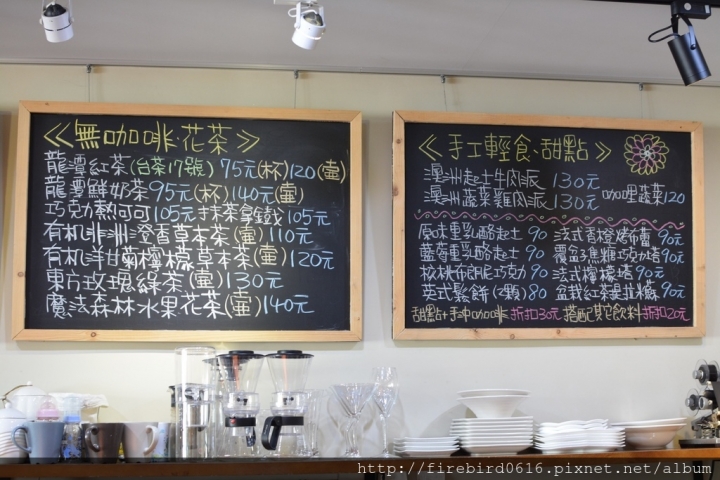 ≪無咖啡·花茶≫
龍潭紅茶(台茶17號) 75元(杯)120(壺)
龍潭鮮奶茶95元(杯)140元(壺)
巧克力熱可可105元抹茶拿鐵105元
有机非洲澄香草本茶(壺)110元
有机洋甘菊檸檬草本茶(壺)120元
東方玫瑰綠茶(壺)130元
魔法森林水果花茶(壺)140元
≪手工輕食·甜點≫
澳洲起士牛肉派 130元
澳洲蔬菜雞肉派 130元 咖哩蔬菜120
原味重乳酪起士 90 法式香橙烤布蕾 90元
藍莓重乳酪起士 90 覆盆子焦糖巧克力塔90元
核桃布朗尼巧克力90 法式檸檬塔90元
英式鬆餅(2顆)80 盆栽紅茶提拉米蘇 90元
甜點+手沖咖啡折扣30元 搭配其它飲料折扣20元
http://firebird0616.pixnet.net/album